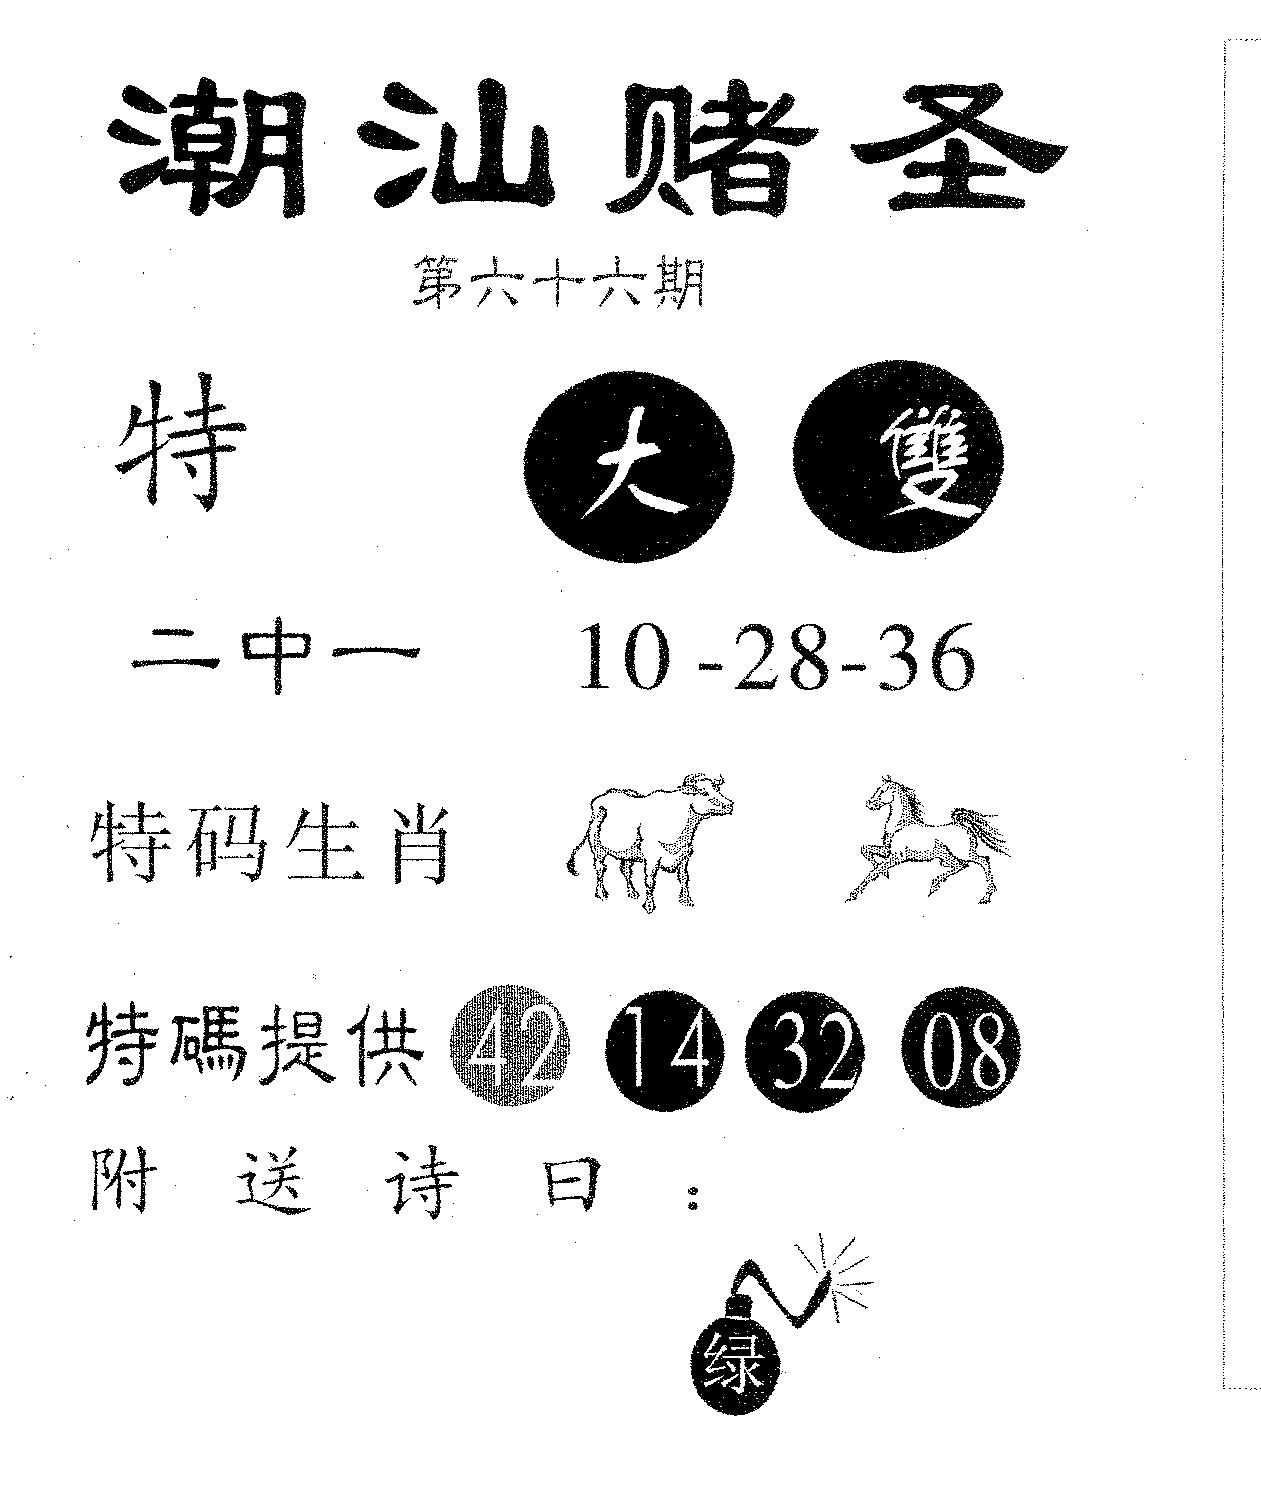 潮汕赌圣
第六十六期
特 大 雙
二中一 10-28-36
特码生肖
特碼提供 42 14 32 08
附送诗曰：
绿